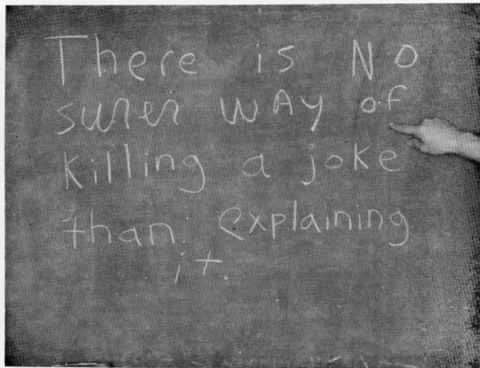 There is NO
surer WAY of
killing a joke
than explaining
it.